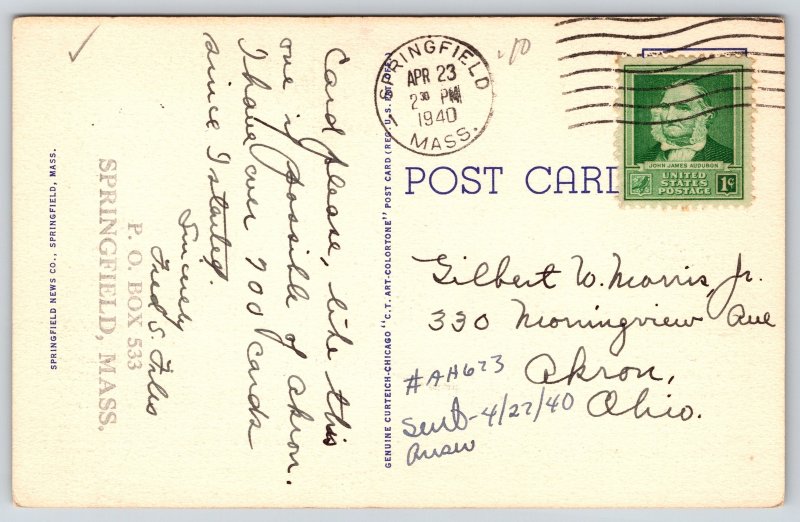 Card please, like this
one if possible of Akron.
I have over 700 cards
since I started.
Sincerely
Fred S.
P. O. BOX 533
SPRINGFIELD, MASS.
SPRINGFIELD NEWS CO., SPRINGFIELD, MASS.
GENUINE CURTEICH-CHICAGO "C.T. ART-COLORTONE" POST CARD (REG. U.S. PAT. OFF.)
SPRINGFIELD
APR 23
2 30 PM
1940
MASS.
POST CARD
JOHN JAMES AUDUBON
UNITED
STATES
POSTAGE
1¢
Gilbert W. Morris, Jr.
330 Morningview Ave
Akron,
Ohio.
#AH623
Sent-4/27/40